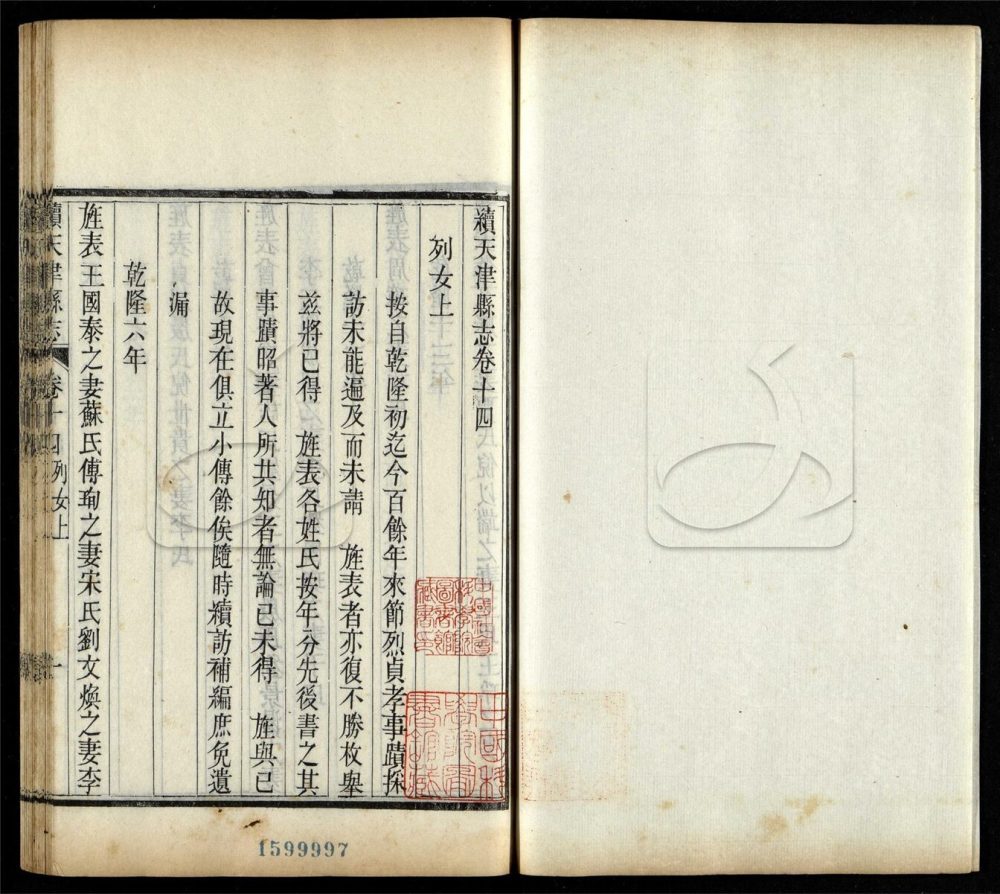 續天津縣志卷十四
列女上
按自乾隆初迄今百餘年來節烈貞孝事蹟採
訪未能遍及而未請　旌表者亦復不勝枚舉
茲將已得　旌表各姓氏按年分先後書之其
事蹟昭著人所共知者無論已未得　旌與已
故現在俱立小傳餘俟隨時續訪補編庶免遺
漏
乾隆六年
旌表王國泰之妻蘇氏傅珣之妻宋氏劉文煥之妻李
續天津縣志 卷十四 列女上 一
1599997